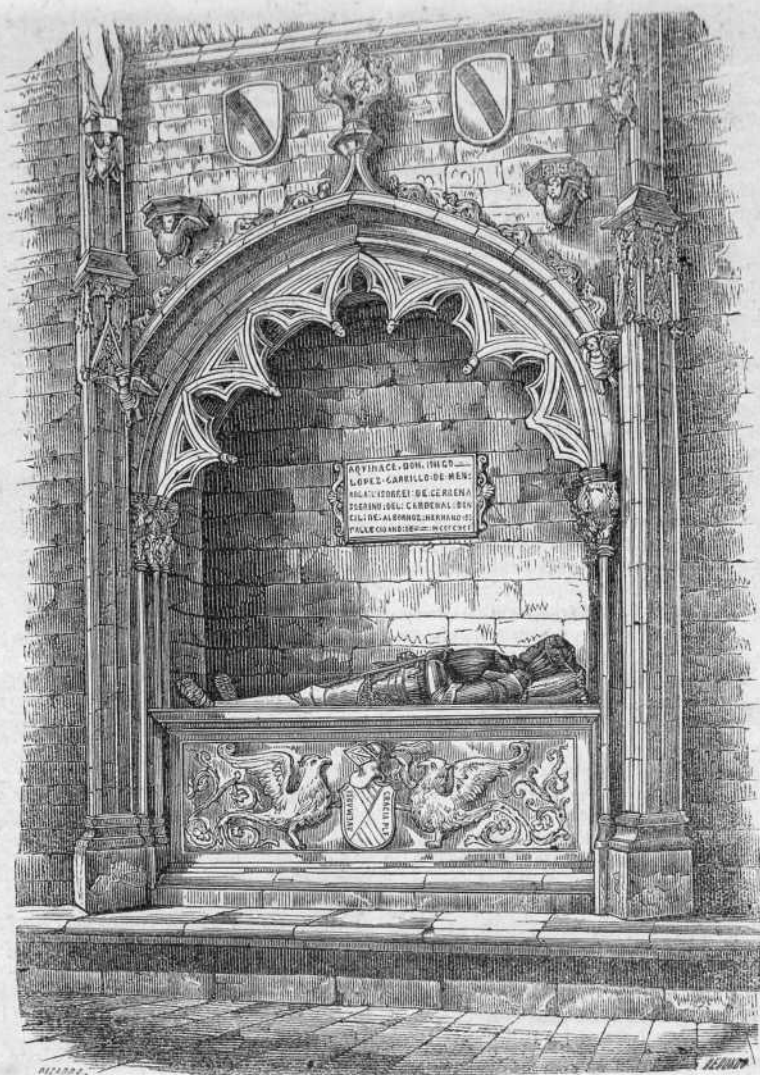 AQVIIACE. DON. INIGO
LOPEZ·CARRILLO·DE·MEN:
VISOREI·DE·CERDENA
DEL: CARDENAL: DON
GIL: DE: ALBORNOZ: HERMANO:
FALLECIO ANO: DE MCCCCXCI
AVEMARIA
GRACIA PLE